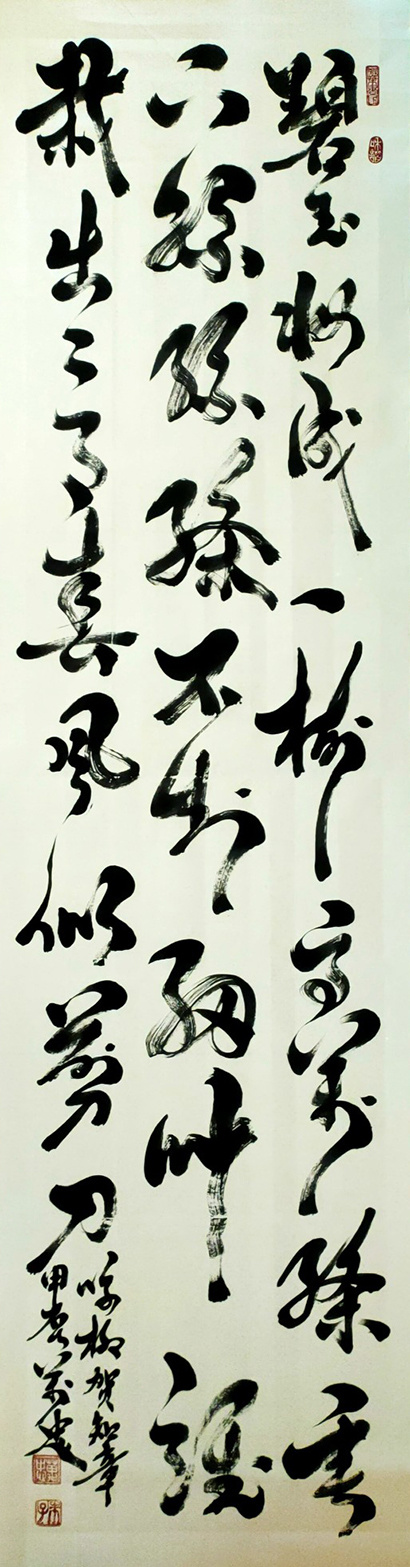 碧玉妝成一樹高萬條垂
下綠絲絛不知細叶誰
裁出二月春風似剪刀
咏柳賀知章